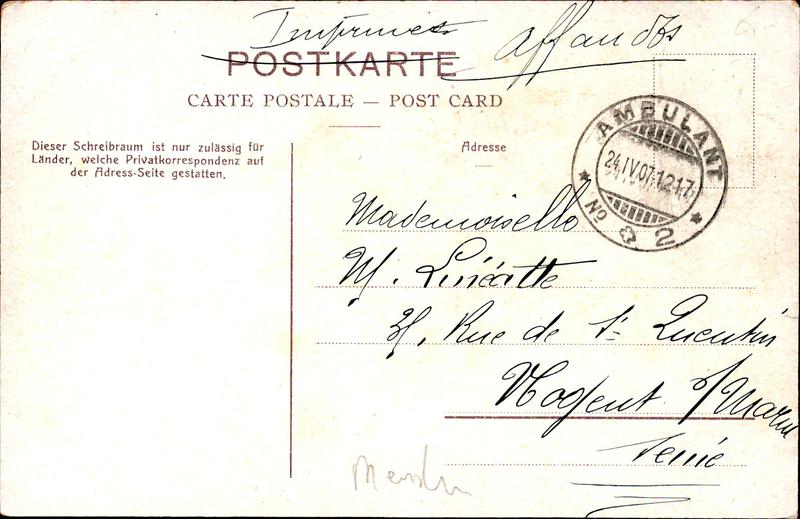 Imprimés affranchis
POSTKARTE
CARTE POSTALE — POST CARD
AMBULANT
24.IV.07.1217
No 2
Dieser Schreibraum ist nur zulässig für
Länder, welche Privatkorrespondenz auf
der Adress-Seite gestatten.
Adresse
Mademoiselle
M. Linéatte
Rue de St Quentin
Nogent s/Marne
Seine